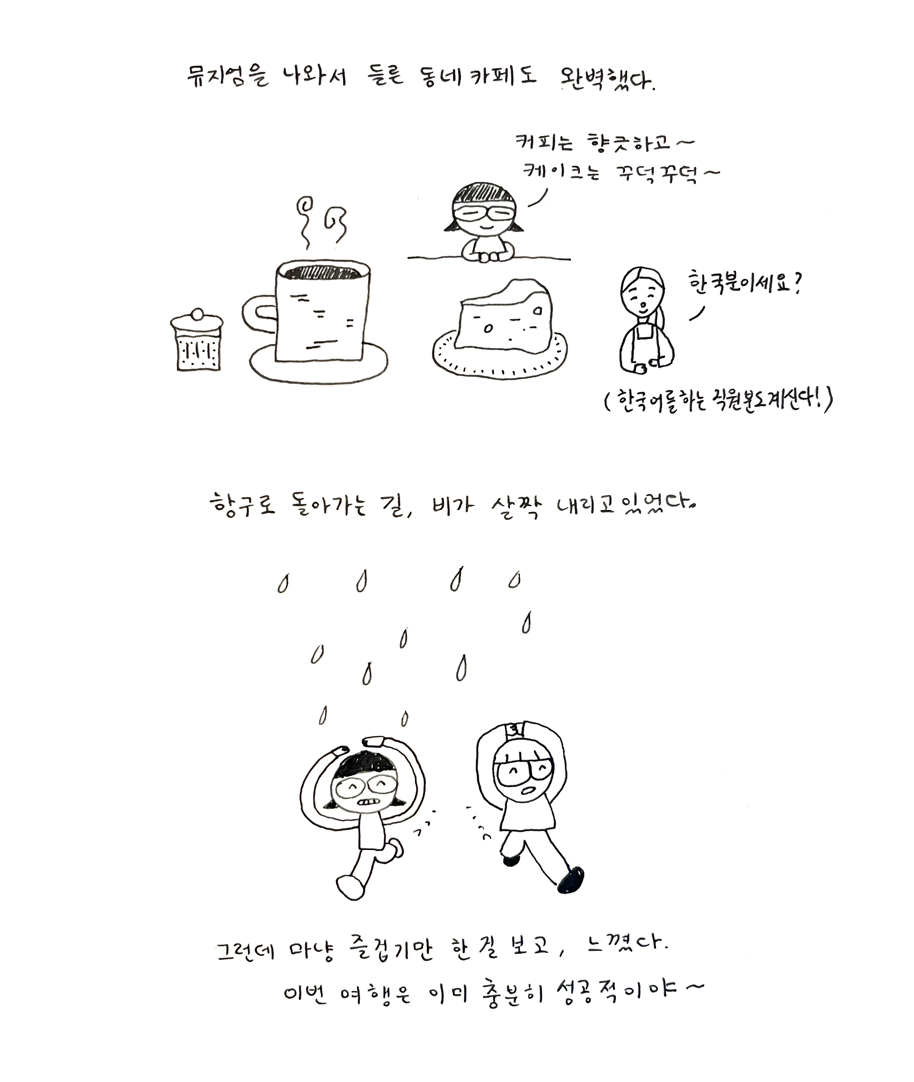 뮤지엄을 나와서 들른 동네 카페도 완벽했다.
커피는 향긋하고~
케이크는 꾸덕꾸덕~
한국분이세요?
(한국어를하는 직원분도계신다!)
항구로 돌아가는 길, 비가 살짝 내리고있었다.
그런데 마냥 즐겁기만 한걸 보고, 느꼈다.
이번 여행은 이미 충분히 성공적이야~